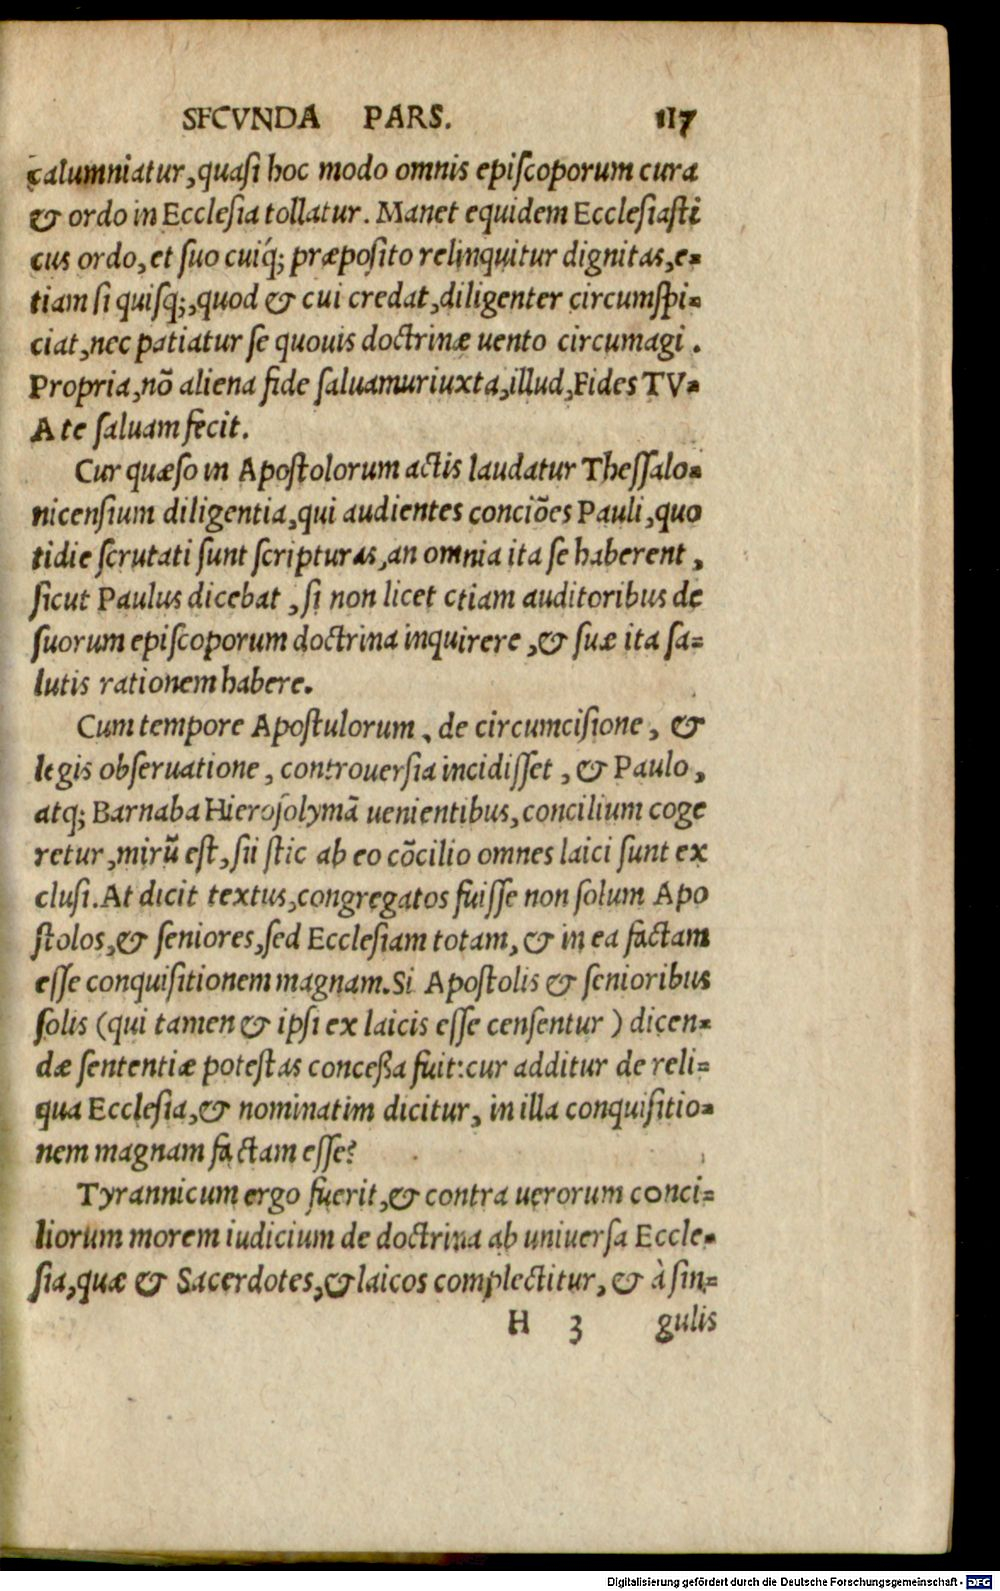 SECVNDA PARS. 117
calumniatur, quasi hoc modo omnis episcoporum cura
& ordo in Ecclesia tollatur. Manet equidem Ecclesiasti
cus ordo, et suo cuiq́; præposito relinquitur dignitas, e-
tiam si quisq;, quod & cui credat, diligenter circumspi-
ciat, nec patiatur se quouis doctrinæ uento circumagi.
Propria, nõ aliena fide saluamur iuxta, illud, Fides TV-
A te saluam fecit.
Cur quæso in Apostolorum actis laudatur Thessalo-
nicensium diligentia, qui audientes conciões Pauli, quo
tidie scrutati sunt scripturas, an omnia ita se haberent,
sicut Paulus dicebat, si non licet etiam auditoribus de
suorum episcoporum doctrina inquirere, & suæ ita sa-
lutis rationem habere.
Cum tempore Apostulorum, de circumcisione, &
legis obseruatione, controuersia incidisset, & Paulo,
atq; Barnaba Hierosolymã uenientibus, concilium coge
retur, mirũ est, sii stic ab eo cõcilio omnes laici sunt ex
clusi. At dicit textus, congregatos fuisse non solum Apo
stolos, & seniores, sed Ecclesiam totam, & in ea factam
esse conquisitionem magnam. Si Apostolis & senioribus
solis (qui tamen & ipsi ex laicis esse censentur) dicen-
dæ sententiæ potestas conceßa fuit: cur additur de reli-
qua Ecclesia, & nominatim dicitur, in illa conquisitio-
nem magnam factam esse?
Tyrannicum ergo fuerit, & contra uerorum conci-
liorum morem iudicium de doctrina ab uniuersa Eccle-
sia, quæ & Sacerdotes, & laicos complectitur, & à sin-
H 3 gulis
Digitalisierung gefördert durch die Deutsche Forschungsgemeinschaft - DFG